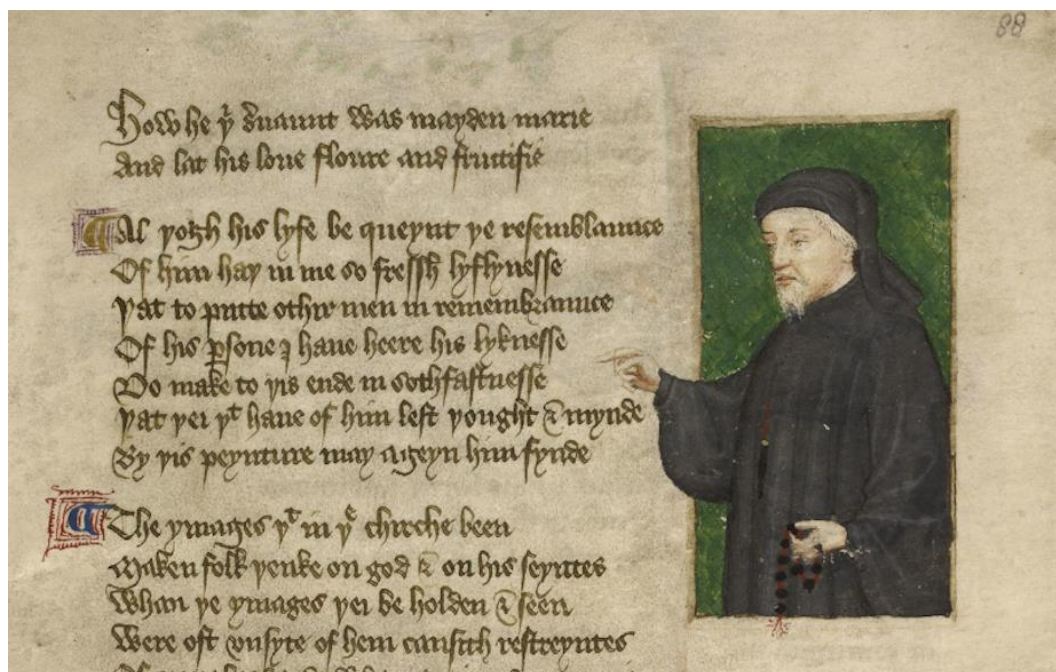 88
How he yͬ s̉uaunt was mayden marie
And lat his loue floure and fructifie
Al yogh his lyfe be queynt ye resemblaunce
Of him hay in me so fressh lyflynesse
Yat to putte othir men in remembraunce
Of his ꝑsone I haue heere his lyknesse
Do make to yis ende in sothfastnesse
Yat yei yͭ haue of him left yought & mynde
By yis peynture may ageyn him fynde
The ymages yͭ in yͤ chirche been
Maken folk yenke on god & on his seyntes
Whan ye ymages yei be holden & seen
Were oft vnsyte of hem causith restreyntes